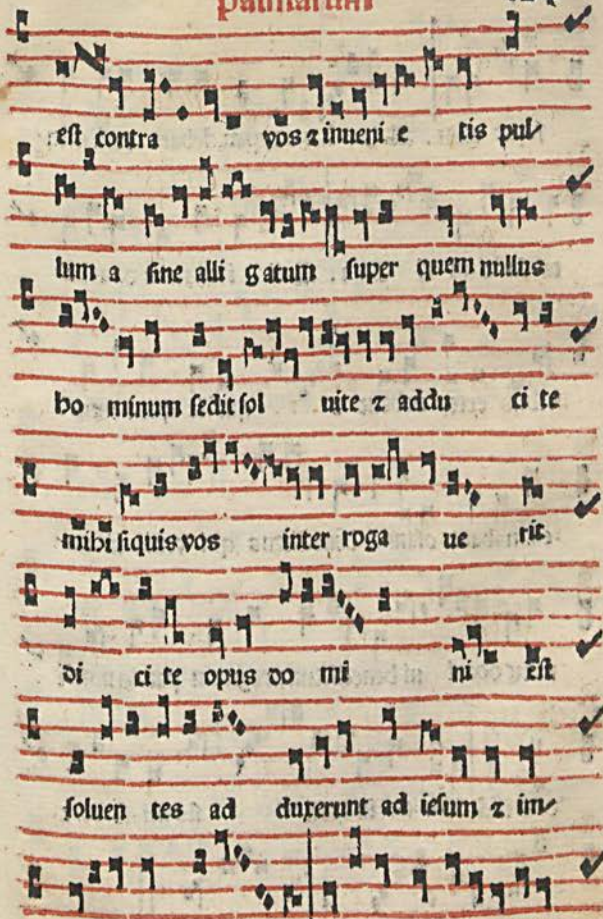 palmarum
est contra vos ⁊ inueni e tis pul⸗
lum a sine alli gatum super quem nullus
ho minum sedit sol uite ⁊ addu ci te
mihi siquis vos inter roga ue rit
di ci te opus do mi ni est
soluen tes ad duxerunt ad iesum ⁊ im⸗